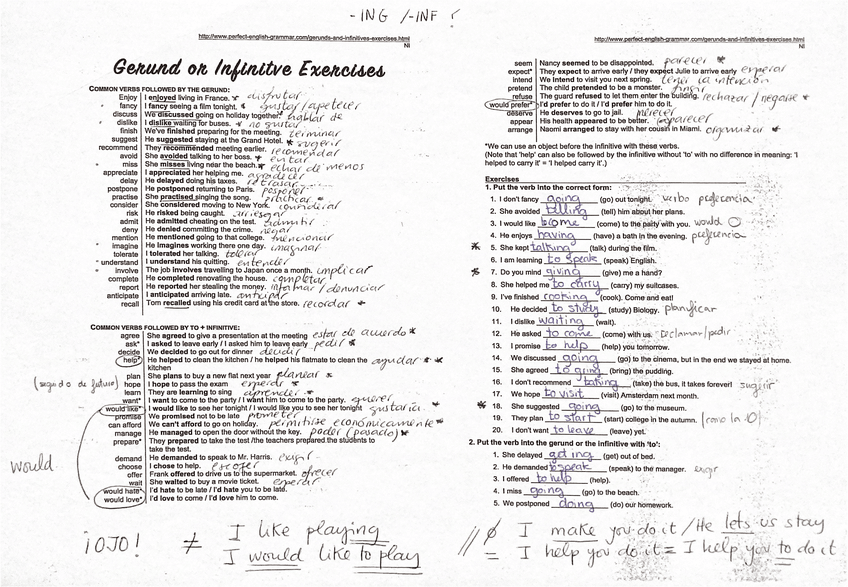 -ING /-INF ?
http://www.perfect-english-grammar.com/gerunds-and-infinitives-exercises.html
NI
Gerund or Infinitve Exercises
COMMON VERBS FOLLOWED BY THE GERUND:
Enjoy I enjoyed living in France. * disfrutar
* fancy I fancy seeing a film tonight. * gustar/apetecer
discuss We discussed going on holiday together. hablar de
* dislike I dislike waiting for buses. * no gustar
finish We've finished preparing for the meeting. terminar
suggest He suggested staying at the Grand Hotel. * sugerir
recommend They recommended meeting earlier. recomendar
avoid She avoided talking to her boss. * evitar
* miss She misses living near the beach. * echar de menos
appreciate I appreciated her helping me. agradecer
delay He delayed doing his taxes. retrasar
postpone He postponed returning to Paris. posponer
practise She practised singing the song. practicar *
consider She considered moving to New York. considerar
risk He risked being caught. arriesgar
admit He admitted cheating on the test. admitir
deny He denied committing the crime. negar
mention He mentioned going to that college. mencionar
* imagine He imagines working there one day. imaginar
tolerate I tolerated her talking. tolerar
* understand I understand his quitting. entender
* involve The job involves travelling to Japan once a month. implicar
complete He completed renovating the house. completar
report He reported her stealing the money. informar / denunciar
anticipate I anticipated arriving late. anticipar
recall Tom recalled using his credit card at the store. recordar *
COMMON VERBS FOLLOWED BY TO + INFINITIVE:
agree She agreed to give a presentation at the meeting estar de acuerdo *
ask* I asked to leave early / I asked him to leave early pedir *
decide We decided to go out for dinner decidir
help* He helped to clean the kitchen / he helped his flatmate to clean the kitchen ayudar * *
plan She plans to buy a new flat next year planear *
(seguido de futuro) hope I hope to pass the exam esperar *
learn They are learning to sing aprender *
want* I want to come to the party / I want him to come to the party. querer
would like* I would like to see her tonight / I would like you to see her tonight gustaría *
promise We promised not to be late prometer
can afford We can't afford to go on holiday. permitirse económicamente *
manage He managed to open the door without the key. poder (pasado) *
prepare* They prepared to take the test /the teachers prepared the students to
take the test.
demand He demanded to speak to Mr. Harris. exigir
choose I chose to help. escoger
offer Frank offered to drive us to the supermarket. ofrecer
wait She waited to buy a movie ticket. esperar
would hate* I'd hate to be late / I'd hate you to be late.
would love* I'd love to come / I'd love him to come.
would
¡OJO! ≠ I like playing
I would like to play
http://www.perfect-english-grammar.com/gerunds-and-infinitives-exercises.html
NI
seem Nancy seemed to be disappointed. parecer *
expect* They expect to arrive early / they expect Julie to arrive early esperar
intend We intend to visit you next spring. tener la intención
pretend The child pretended to be a monster. fingir
refuse The guard refused to let them enter the building. rechazar / negarse *
would prefer* I'd prefer to do it / I'd prefer him to do it.
deserve He deserves to go to jail. merecer
appear His health appeared to be better. aparecer
arrange Naomi arranged to stay with her cousin in Miami. organizar *
*We can use an object before the infinitive with these verbs.
(Note that 'help' can also be followed by the infinitive without 'to' with no difference in meaning: 'I
helped to carry it' = 'I helped carry it'.)
Exercises
1. Put the verb into the correct form:
1. I don't fancy going (go) out tonight. verbo preferencia
2. She avoided telling (tell) him about her plans.
3. I would like to come (come) to the party with you. would
4. He enjoys having (have) a bath in the evening. preferencia
* 5. She kept talking (talk) during the film.
6. I am learning to speak (speak) English.
* 7. Do you mind giving (give) me a hand?
8. She helped me to carry (carry) my suitcases.
9. I've finished cooking (cook). Come and eat!
10. He decided to study (study) Biology. planificar
11. I dislike waiting (wait).
12. He asked to come (come) with us. reclamar/pedir
13. I promise to help (help) you tomorrow.
14. We discussed going (go) to the cinema, but in the end we stayed at home.
15. She agreed to bring (bring) the pudding.
16. I don't recommend taking (take) the bus, it takes forever! sugerir
17. We hope to visit (visit) Amsterdam next month.
* 18. She suggested going (go) to the museum.
19. They plan to start (start) college in the autumn. (como la 10)
20. I don't want to leave (leave) yet.
2. Put the verb into the gerund or the infinitive with 'to':
1. She delayed getting (get) out of bed.
2. He demanded to speak (speak) to the manager. exigir
3. I offered to help (help).
4. I miss going (go) to the beach.
5. We postponed doing (do) our homework.
// ∅ I make you do it / He lets us stay
= I help you do it = I help you to do it